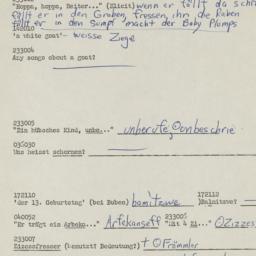 "Hoppa, hoppa, Reiter..." (Elicit) wenn er fällt da schr
fällt er in den Graben, fressen ihn die Raben
fällt er in den Sumpf macht der Baby Plumps
'a white goat'- weisse Ziege
233004
Any songs about a goat?
233005
"Ein hübsches Kind, unbe..." unberufe
036030
Was heisst schormen?
172110
'der 13. Geburtstag' (bei Buben) bomitzwe
172112
040052
"Er trägt ein Arbeko..." Arfekanseff
233006
233007
Zizessfresser (benutzt? Bedeutung?) + Frömmler